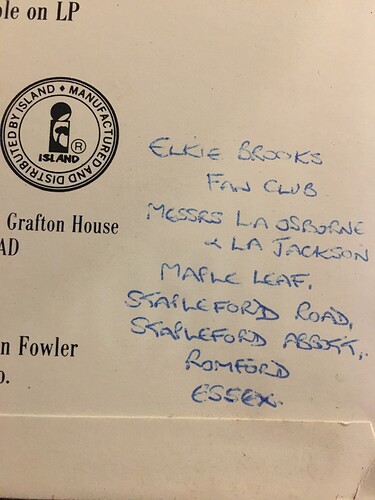 ple on LP
MANUFACTURED AND DISTRIBUTED BY ISLAND
®
ISLAND
Grafton House
AD
n Fowler
o.
ELKIE BROOKS
FAN CLUB
MESSRS LA OSBORNE
& LA JACKSON
MAPLE LEAF,
STAPLEFORD ROAD,
STAPLEFORD ABBOTT,
ROMFORD
ESSEX.